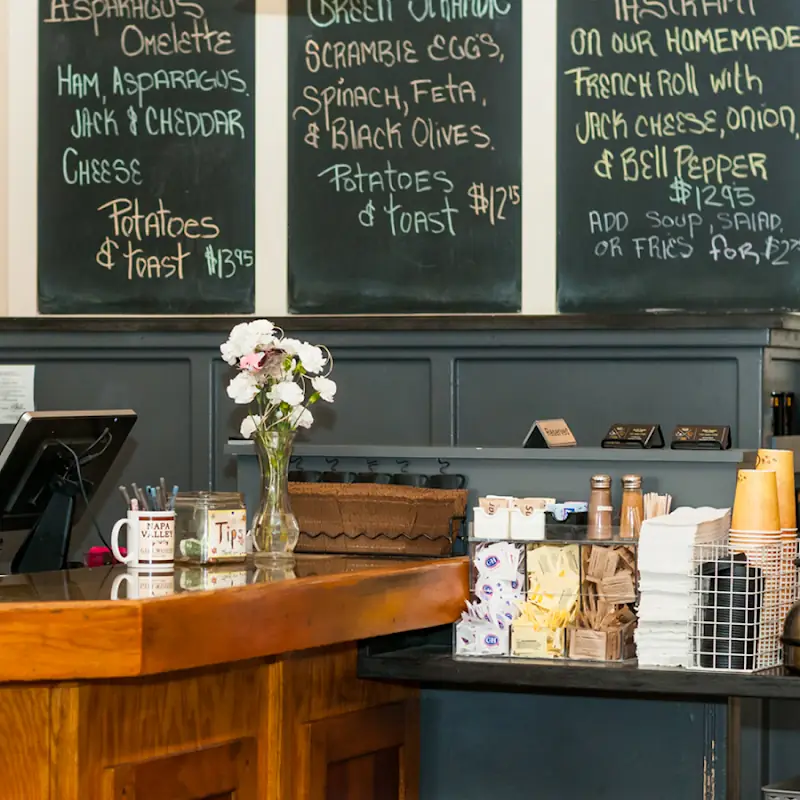 ASPARAGUS
OMELETTE
HAM, ASPARAGUS,
JACK & CHEDDAR
CHEESE
POTATOES
& TOAST $13.95
GREEN
SCRAMBLE EGGS,
SPINACH, FETA,
& BLACK OLIVES.
POTATOES
& TOAST $12.15
PASTRAMI
ON OUR HOMEMADE
FRENCH ROLL WITH
JACK CHEESE, ONION,
& BELL PEPPER
$12.95
ADD SOUP, SALAD,
OR FRIES FOR $2
Reserved
NAPA
VALLEY
Tips